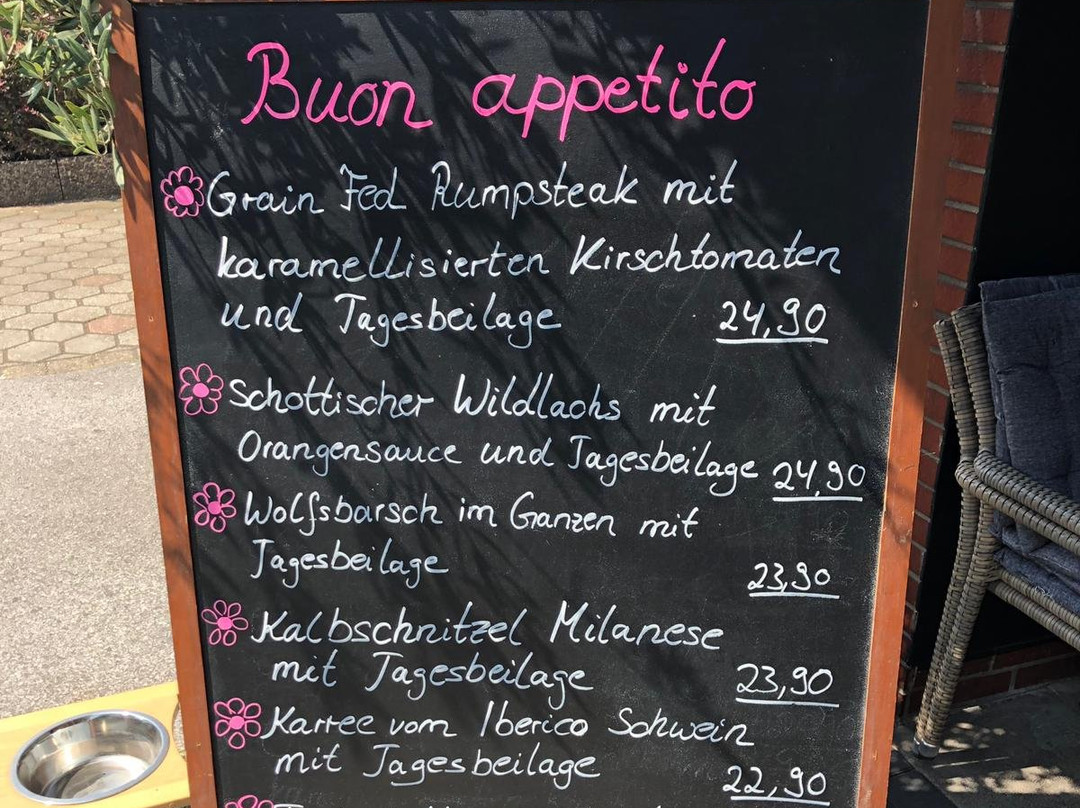 Buon appetito
Grain Fed Rumpsteak mit
karamellisierten Kirschtomaten
und Tagesbeilage 24,90
Schottischer Wildlachs mit
Orangensauce und Tagesbeilage 24,90
Wolfsbarsch im Ganzen mit
Tagesbeilage 23,90
Kalbschnitzel Milanese
mit Tagesbeilage 23,90
Karree vom Iberico Schwein
mit Tagesbeilage 22,90